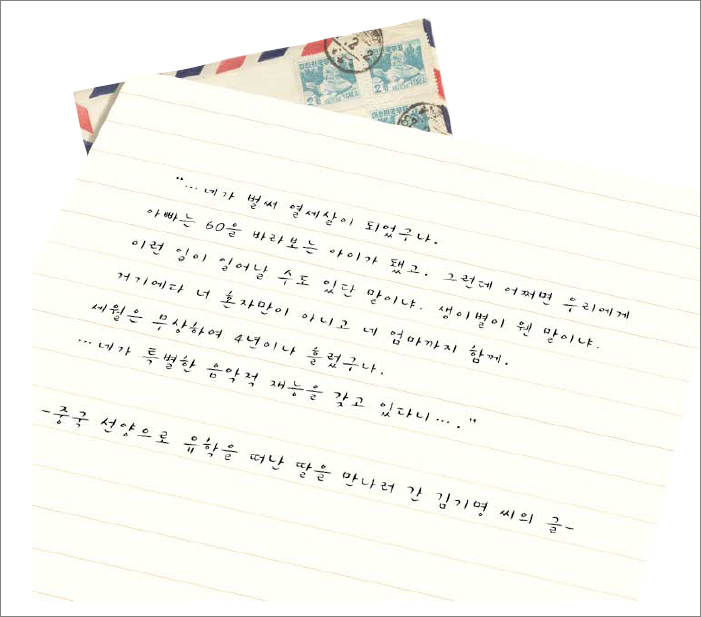 "…네가 벌써 열세살이 되었구나.
아빠는 60을 바라보는 아이가 됐고. 그런데 어쩌면 우리에게
이런 일이 일어날 수도 있단 말이냐. 생이별이 웬 말이냐.
거기에다 너 혼자만이 아니고 네 엄마까지 함께.
세월은 무상하여 4년이나 흘렀구나.
…네가 특별한 음악적 재능을 갖고 있다니…."
-중국 선양으로 유학을 떠난 딸을 만나러 간 김기명 씨의 글-